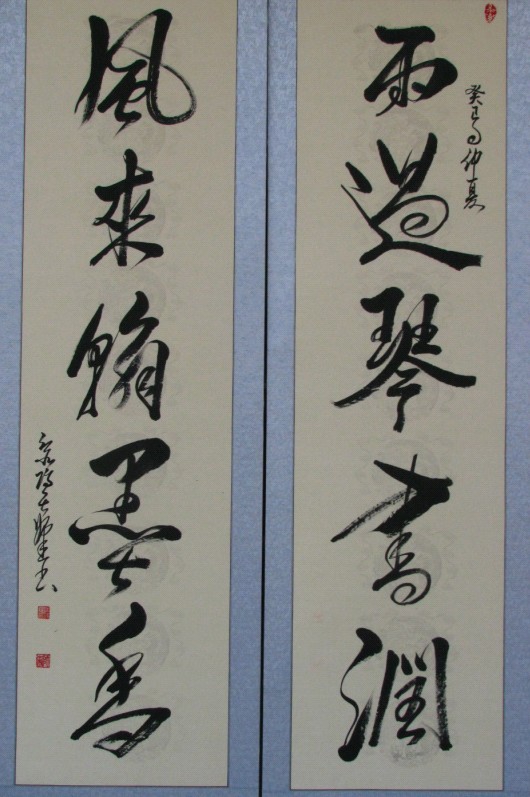 雨過琴書潤
癸巳仲夏
風來翰墨香